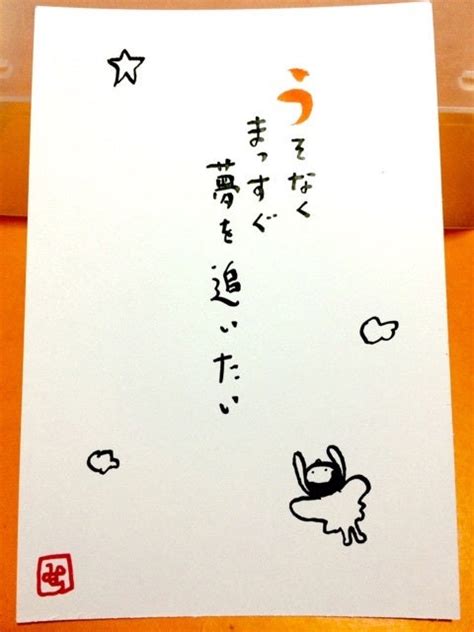 うそなく
まっすぐ
夢を追いたい